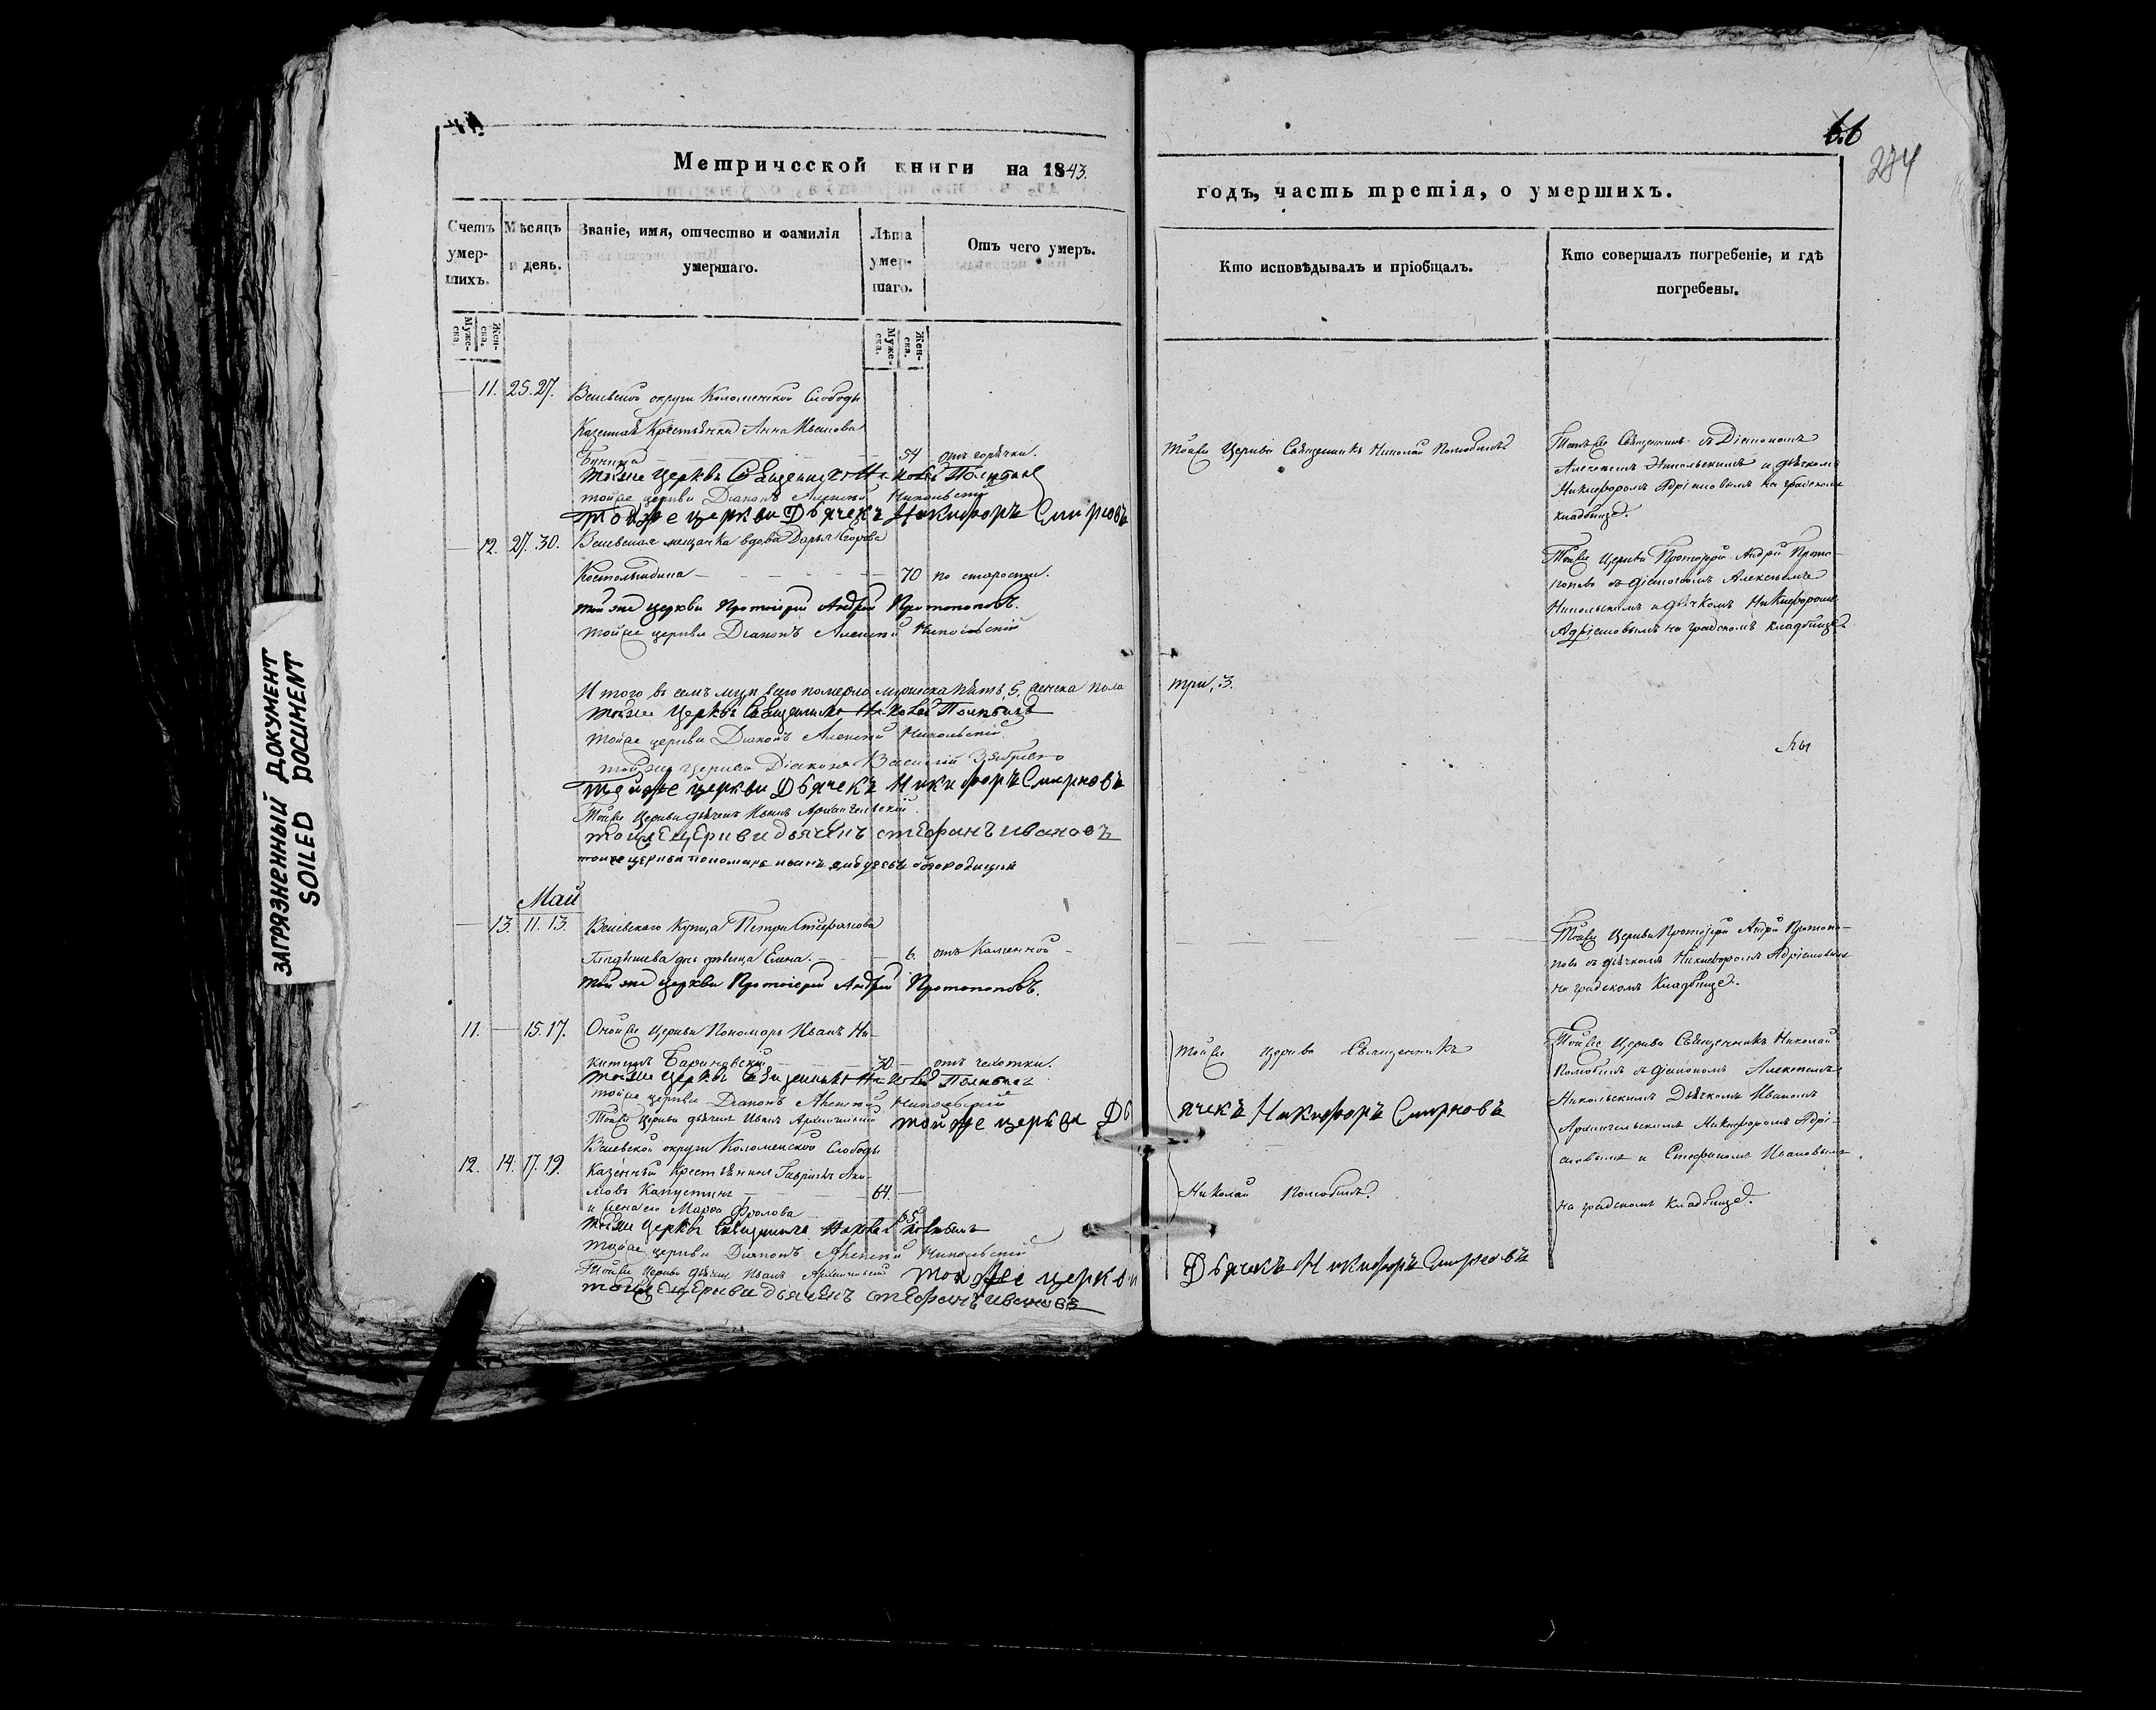 66
284
Метрической книги на 1843.
годъ, часть третія, о умершихъ.
Счетъ умер-шихъ.
Мѣсяцъ и день.
Званіе, имя, отчество и фамилія умершаго.
Лѣта умер-шаго.
Отъ чего умеръ.
Кто исповѣдывалъ и пріобщалъ.
Кто совершалъ погребеніе, и гдѣ погребены.
Муже-ска.
Жен-ска.
Муже-ска.
Жен-ска.
11. 25. 27. округи Коломенской Слободы
Крестьянка Анна
54 отъ горячки.
Тойже Церкви Священникъ Николай
Тойже церкви Діаконъ Алексѣй Никольскій
Тойже церкви Дьячекъ Никифоръ Смирновъ
Священникъ съ Діакономъ
Алексѣемъ Никольскимъ и дьячкомъ
Никифоромъ Адріановымъ на градскомъ
кладбищѣ.
12. 27. 30. мещанка вдова Дарья
70 по старости.
той же церкви Протоіерей Андрей Протопоповъ.
тойже церкви Діаконъ Алексѣй Никольскій
Тойже Церкви Протоіерей Андрей Прото-
поповъ съ діакономъ Алексѣемъ
Никольскимъ и дьячкомъ Никифоромъ
Адріановымъ на градскомъ кладбищѣ
И того въ семъ всего померло мужеска пять, 5, женска пола
три, 3.
тойже Церкви Священникъ Николай
тойже церкви Діаконъ Алексѣй Никольскій.
тойже церкви Діаконъ Василій
тойже церкви Дьячекъ Никифоръ Смирновъ
Тойже Церкви дьячекъ Иванъ Архангельскій
тойже церкви дьячекъ стефанъ ивановъ
тойже церкви пономарь иванъ
Май
13. 11. 13. Купца Петра Стефанова
дочь дѣвица Елена. 6. отъ Каменной
той же церкви Протоіерей Андрей Протопоповъ.
Тойже Церкви Протоіерей Андрей Протопо-
повъ съ дьячкомъ Никифоромъ Адріановымъ
на градскомъ Кладбищѣ.
11. 15. 17. Оной же Церкви Пономарь Иванъ Ни-
китинъ 30 отъ чахотки.
тойже Церкви Священникъ Николай
тойже церкви Діаконъ Алексѣй Никольскій
Тойже Церкви дьячекъ Иванъ Архангельскій тойже церкви Дь
ячекъ Никифоръ Смирновъ
тойже Церкви Священникъ
Николай
Тойже Церкви Священникъ Николай
съ діакономъ Алексѣемъ
Никольскимъ Дьячкомъ Иваномъ
Архангельскимъ Никифоромъ Адрі-
ановымъ и Стефаномъ Ивановымъ
на градскомъ кладбищѣ.
округи Коломенской Слободы
12. 14. 17. 19. Казенный Крестьянинъ Гавріилъ Аки-
мовъ Капустинъ 64
и жена его Марѳа Фролова 65
тойже Церкви Священникъ Николай
тойже церкви Діаконъ Алексѣй Никольскій
Тойже Церкви дьячекъ Иванъ Архангельскій тойже церкви
Дьячекъ Никифоръ Смирновъ
тойже церкви дьячекъ стефанъ ивановъ
ЗАГРЯЗНЕННЫЙ ДОКУМЕНТ
SOILED DOCUMENT